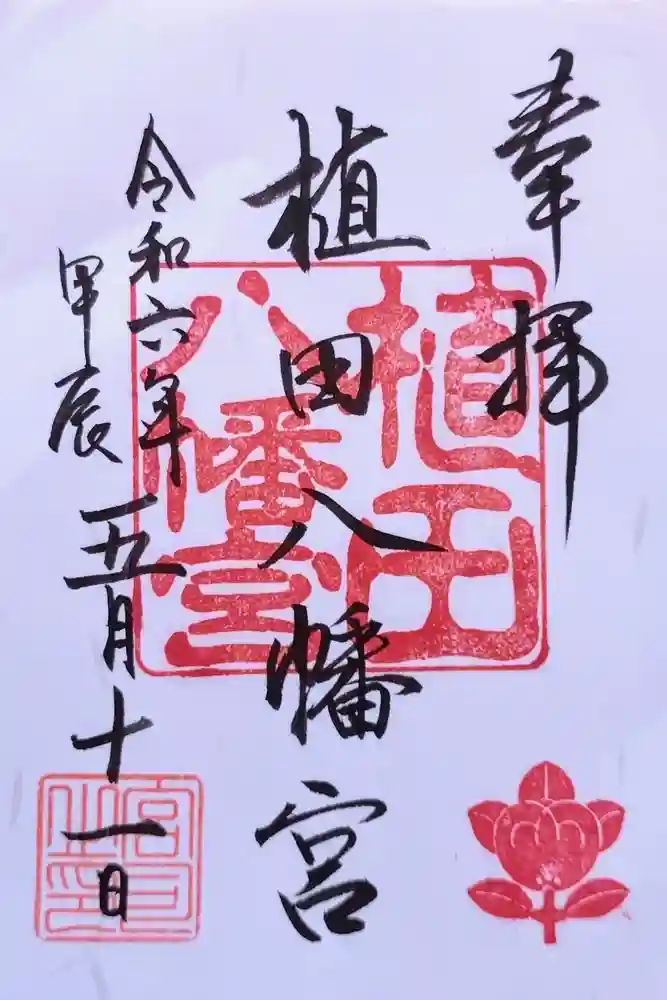 奉拝
植田八幡宮
令和六年
甲辰
五月十一日
植田
八幡宮
宮司之印